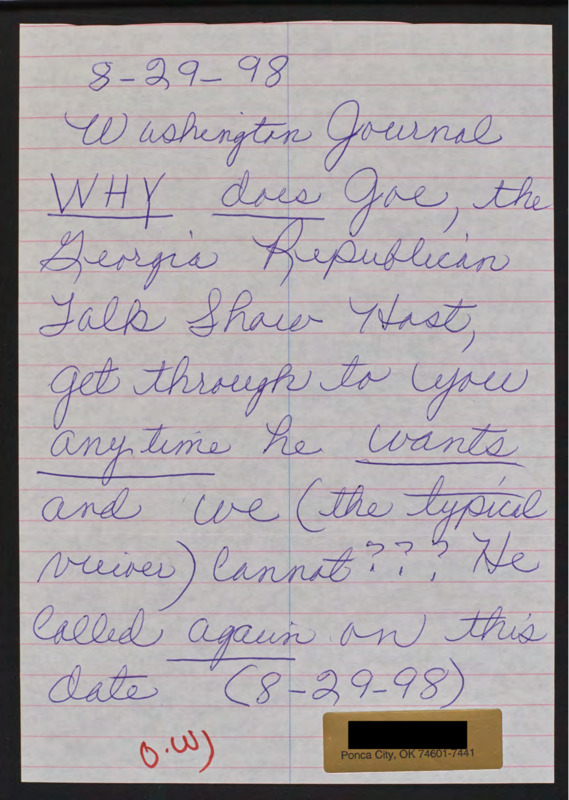 8-29-98
Washington Journal
WHY does Joe, the
Georgia Republican
Talk Show Host,
get through to you
anytime he wants
and we (the typical
viewer) cannot??? He
called again on this
date (8-29-98)
O.W)
Ponca City, OK 74601-7441